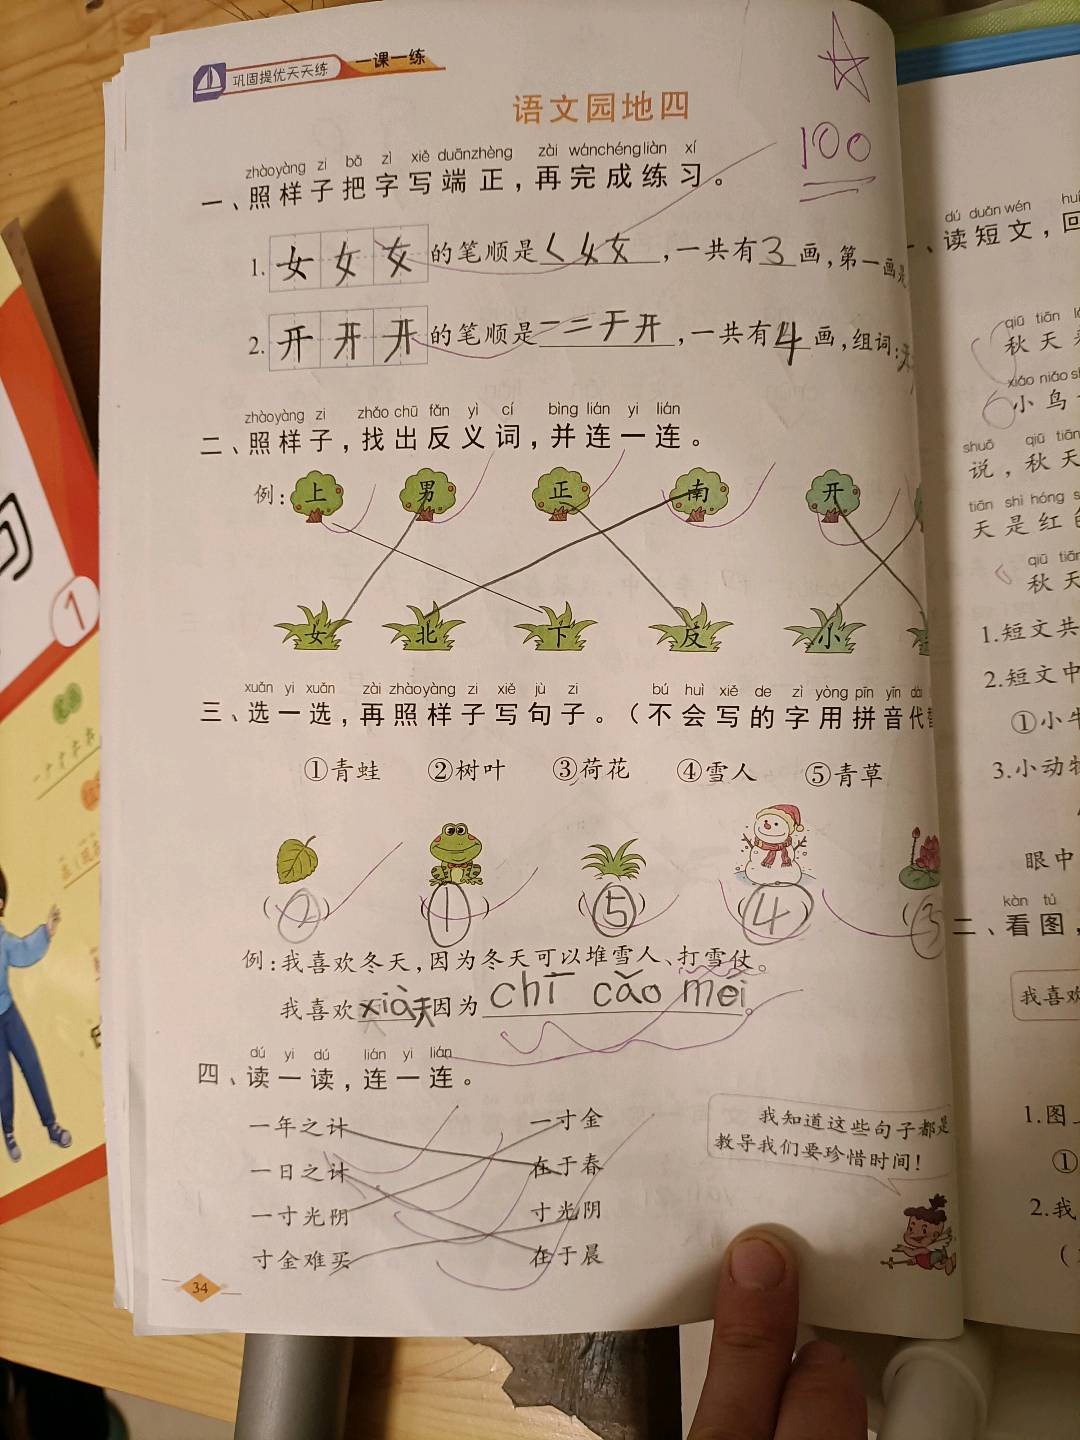 巩固提优天天练 一课一练
语文园地四
100
zhàoyàng zi bǎ zì xiě duānzhèng zài wánchéngliàn xí
一、照样子把字写端正，再完成练习。
1. 女 女 女 的笔顺是 く 女 女 ，一共有 3 画，第一画是
2. 开 开 开 的笔顺是 一 二 于 开 ，一共有 4 画，组词：
zhàoyàng zi zhǎo chū fǎn yì cí bìng lián yi lián
二、照样子，找出反义词，并连一连。
例：上 男 正 南 开
女 北 下 反 小
xuǎn yi xuǎn zài zhàoyàng zi xiě jù zi bú huì xiě de zì yòng pīn yīn dài
三、选一选，再照样子写句子。（不会写的字用拼音代
①青蛙 ②树叶 ③荷花 ④雪人 ⑤青草
（2） （1） （5） （4） （3
例：我喜欢冬天，因为冬天可以堆雪人、打雪仗。
我喜欢 xià天 因为 chī cǎo méi 。
dú yi dú lián yi lián
四、读一读，连一连。
一年之计 一寸金
一日之计 在于春
一寸光阴 寸光阴
寸金难买 在于晨
我知道这些句子都是
教导我们要珍惜时间！
34
dú duǎn wén huí
、读短文，回
qiū tiān
秋天
xiǎo niǎo
小鸟
shuō qiū tiān
说，秋天
tiān shì hóng
天是红
qiū tiān
秋天
1.短文共
2.短文中
①小
3.小动物
眼中
kàn tú
二、看图，
我喜欢
1.图
①
2.我
（
1